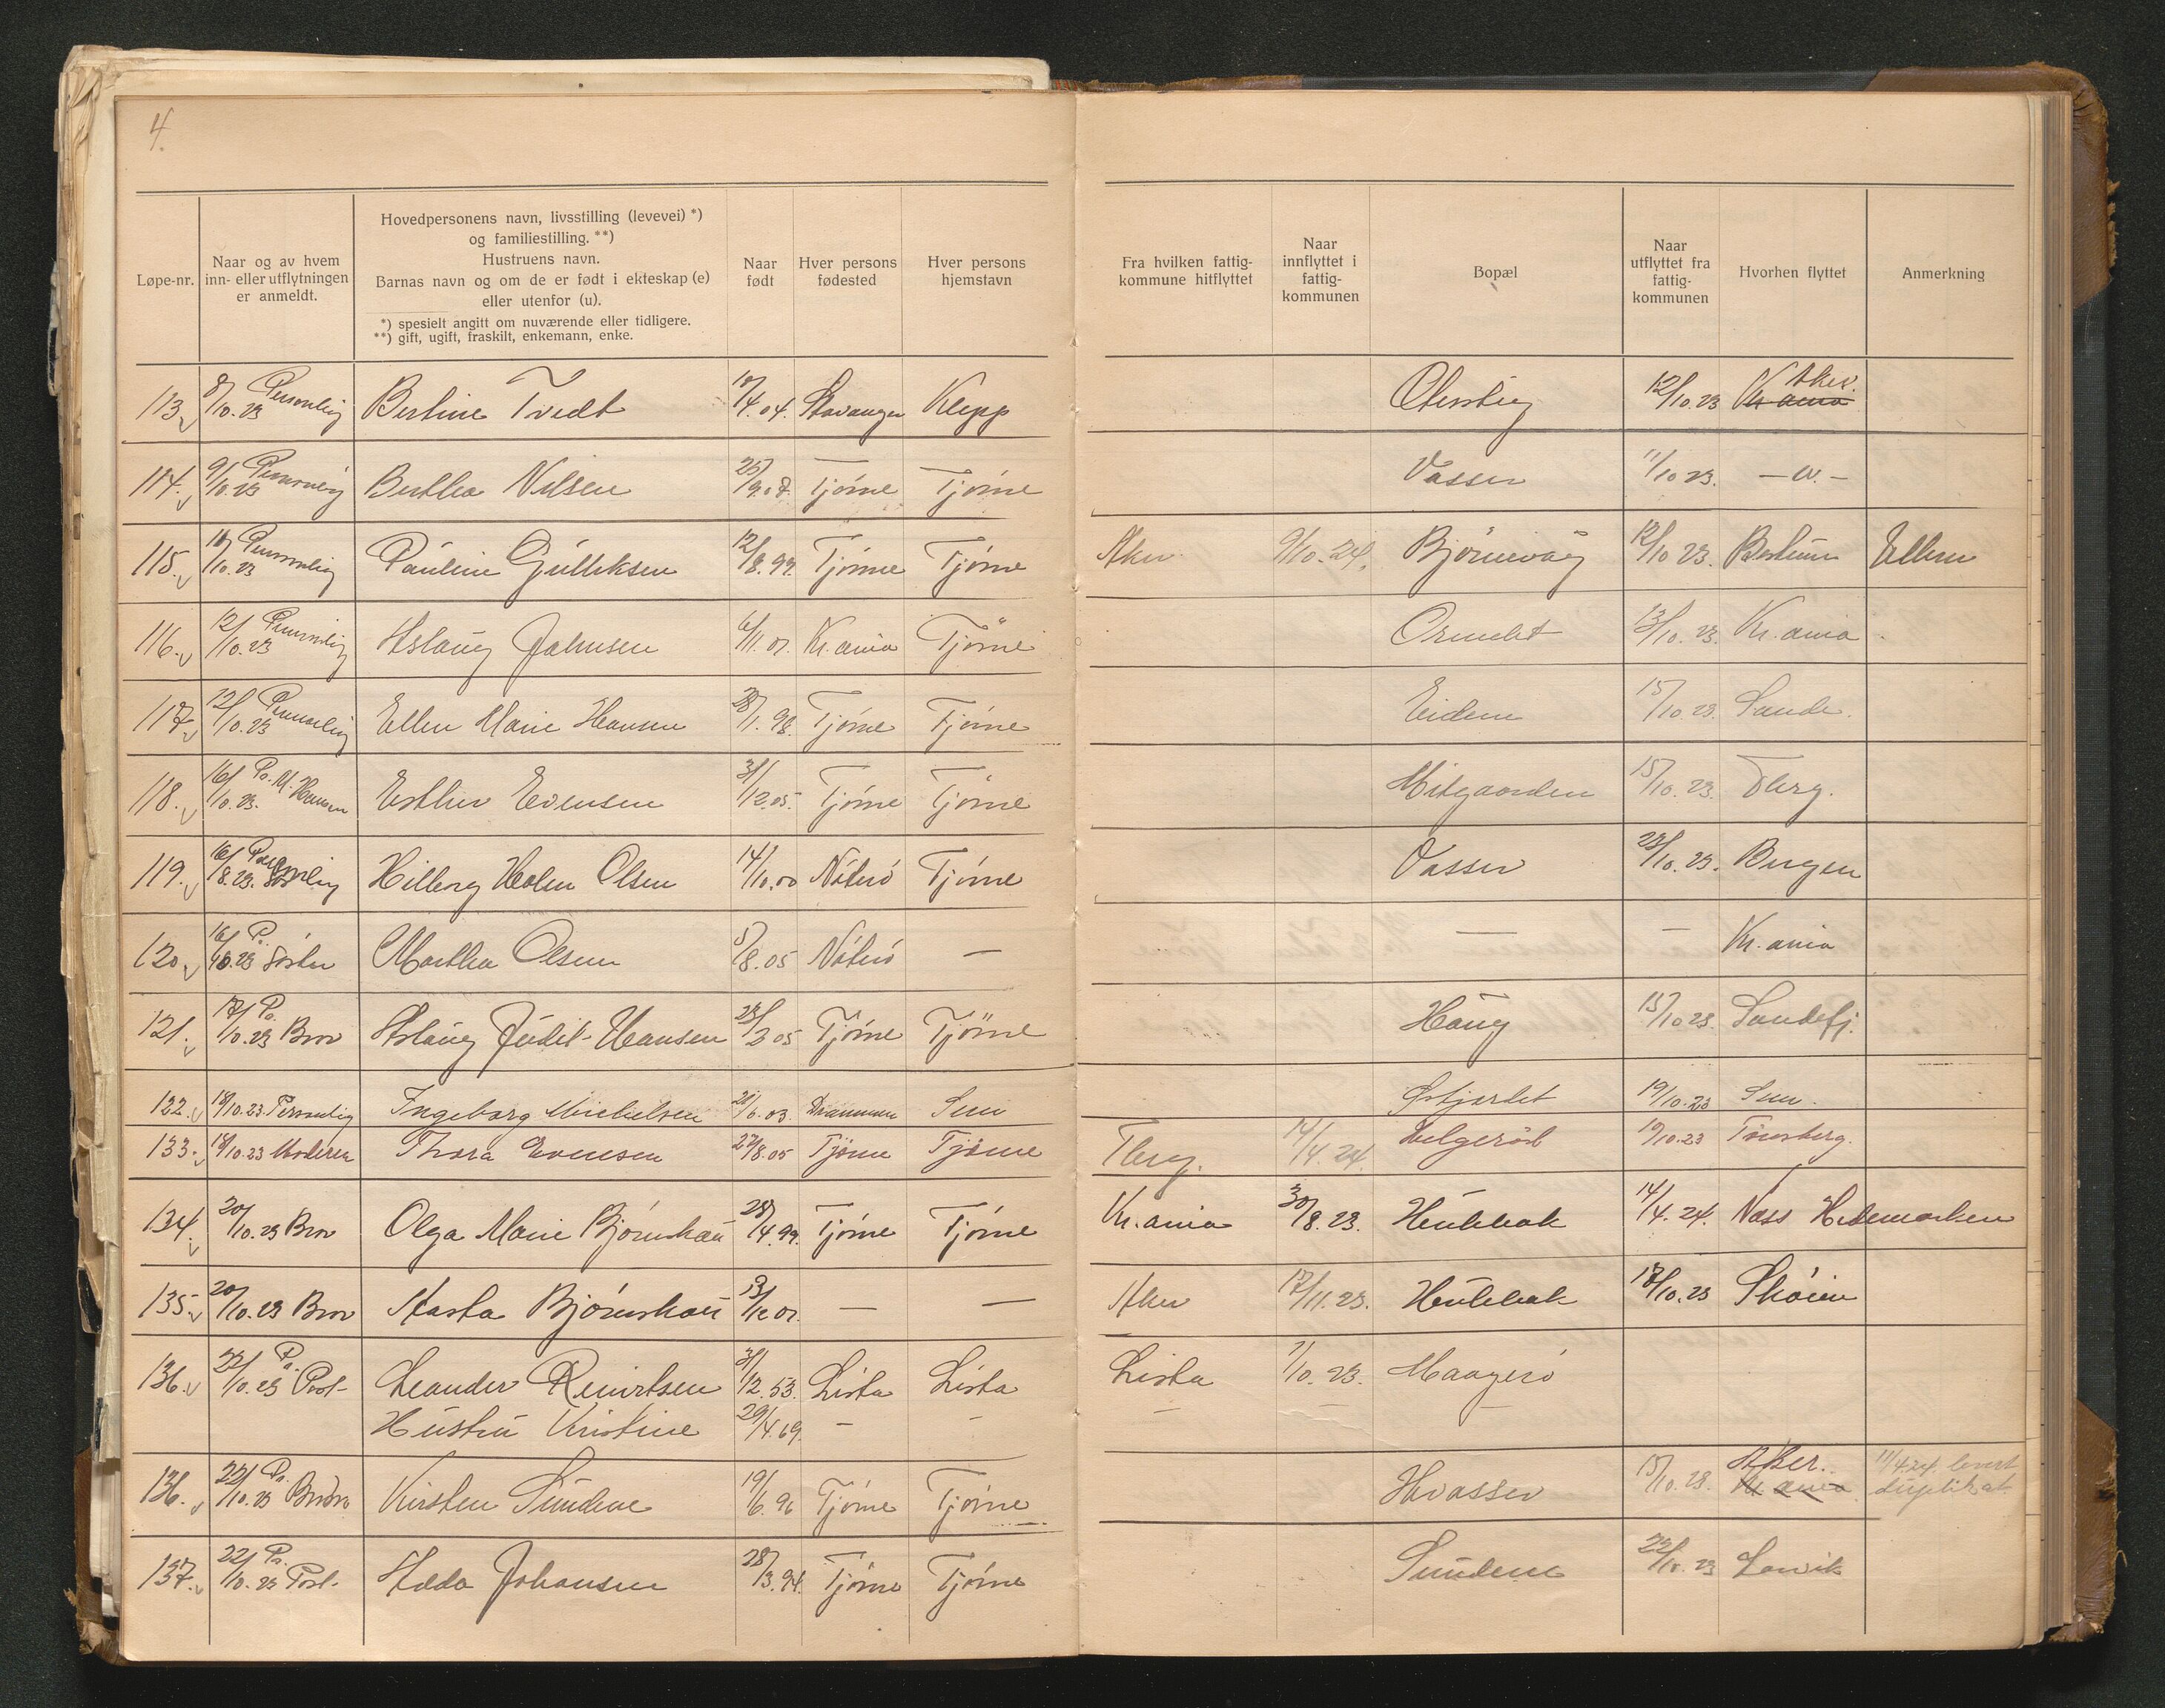 4.
Løpe-nr.
Naar og av hvem
inn- eller utflytningen
er anmeldt.
Hovedpersonens navn, livsstilling (levevei) *)
og familiestilling. **)
Hustruens navn.
Barnas navn og om de er født i ekteskap (e)
eller utenfor (u).
*) spesielt angitt om nuværende eller tidligere.
**) gift, ugift, fraskilt, enkemann, enke.
Naar
født
Hver persons
fødested
Hver persons
hjemstavn
Fra hvilken fattig-
kommune hitflyttet
Naar
innflyttet i
fattig-
kommunen
Bopæl
Naar
utflyttet fra
fattig-
kommunen
Hvorhen flyttet
Anmerkning
113. 8/10.23 Personlig Bertine Tvedt /4.04. Stavanger Klepp 12/10.23 Kr.ania Aker.
114. 9/10.23 Personlig Berthea Nilsen 25/9.07. Tjöme Tjöme Vasser 11/10 23. —
115. 10/10.23 Personlig Pauline Gulliksen 12/8.99. Tjöme Tjöme Aker 9/10.24. Björnevåg 12/10 23. Bestum
116. 12/10.23 Personlig Aslaug Jahnsen 6/11.07. Kr.ania Tjöme Ormelet 13/10.23. Kr.ania
117. 12/10.23 Personlig Ellen Marie Hansen 28/1.98. Tjöme Tjöme Eidene 15/10.23. Sande.
118. 16/10.23. Pr. M. Hansen Esther Evensen 31/12.05. Tjöme Tjöme Mitgaarden 15/10.23. Tbrg.
119. 16/8.23. Personlig Hilborg Helen Olsen 14/10.00 Nöterö Tjöme Vasser 23/10.23. Bergen
120. 16/10.23 Pr. Søster Marthea Olsen 5/8.05 Nöterö — — — Kr.ania
121. 17/10.23 Pr. Bror Aslaug Judit Hansen 23/2 05 Tjöme Tjöme Haug 15/10 23. Sandefj.
122. 18/10.23. Personlig Ingeborg Mikkelsen 6.03. Drammen Sem Østjordet 19/10.23 Sem.
133. 18/10.23 Moderen Thora Evensen 27/8.05 Tjöme Tjöme Tbrg. 14/4.24. Helgeröd 19/10.23 Tönsberg.
134. 20/10.23 Bror Olga Marie Björnskau 28/4.99. Tjöme Tjöme Kr.ania 30/8.23. Hulebak 14/4.24. Næss Hedemarken
135. 20/10.23 Bror Aasta Björnskau /12 07. — — Aker 17/11.23. Hulebak 18/10.23 Skøien
136. 22/10.23 Pr. Post- Leander Reiertsen 31/12.53. Lista Lista Lista 1/10.23. Maagerö
Hustru Kristine 29/4.69. — — — — —
136. 22/10.23 Pr. Kirsten Sundene 19/6.96 Tjöme Tjöme Hvasser 15/10.23. Kr.ania Aker. 11/4.24. levert
duplikat
137. 22/10.23 Pr. Post- Hilda Johansen 28/3.94. Tjöme Tjöme Sundene 22/10.23 Larvik